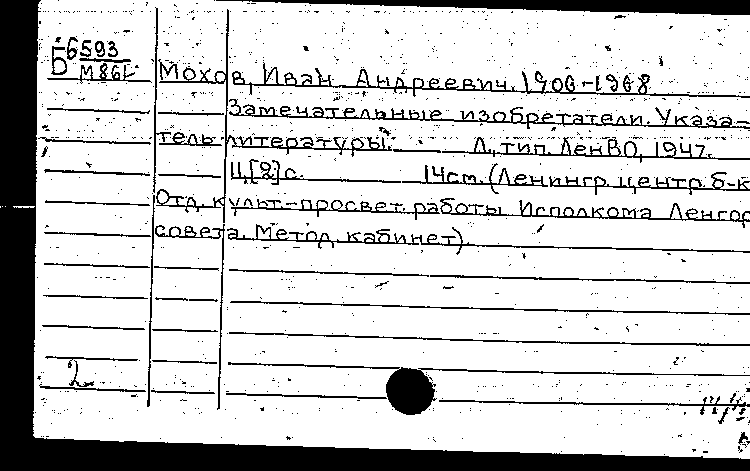 Б 6593
М 86
Мохов, Иван Андреевич. 1906-1968
Замечательные изобретатели. Указа-
тель литературы. Л., тип. ЛенВО, 1947.
14см. (Ленингр. центр. б-к
Отд. культ.-просвет. работы Исполкома Ленгор
совета. Метод. кабинет).
2